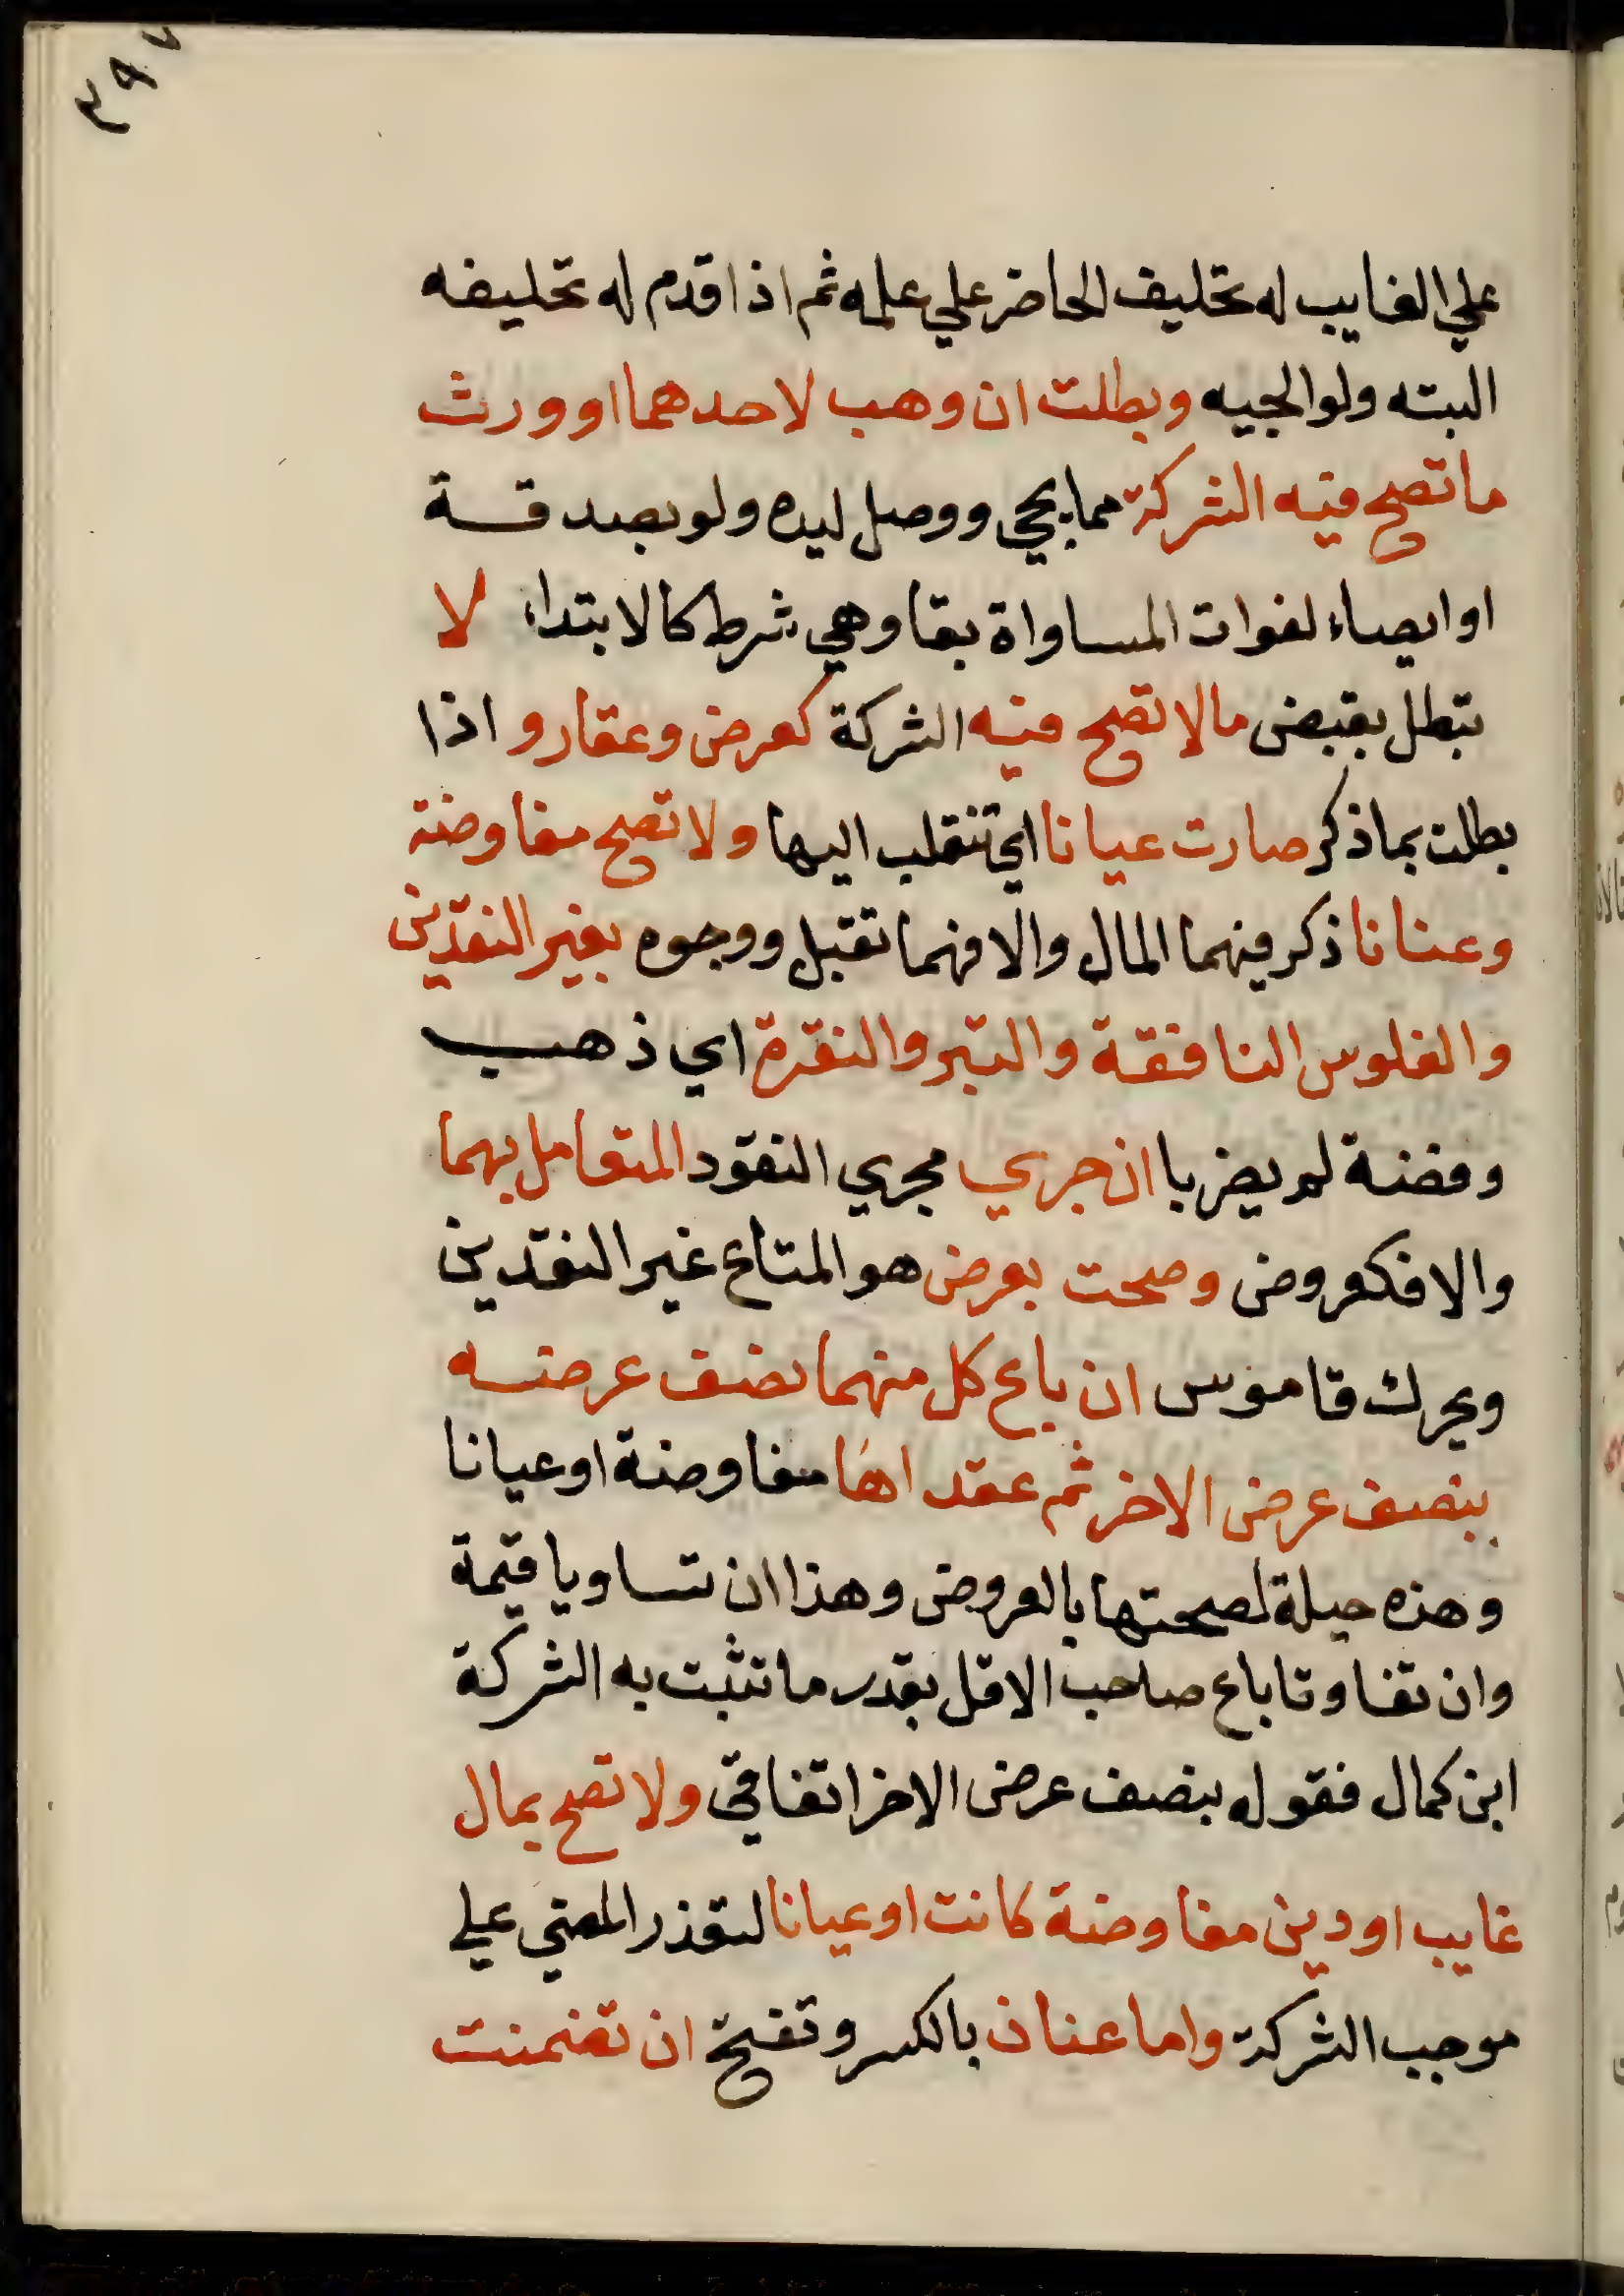 ٣٩٧
علي الغايب له تحليف الحاضر علي علمه ثم اذا قدم له تحليفه
البته ولوالجيه وبطلت ان وهب لاحدهما او ورث
ما تصح فيه الشركة مما يجي ووصل ليده ولو بصدقة
او ايصاء لفوات المساواة بقا وهي شرط كالابتداء لا
تبطل بقبض مالا تصح فيه الشركة كعرض وعقار و اذا
بطلت بما ذكر صارت عيانا اي تنقلب اليها ولا تصح مفاوضة
وعنانا ذكر فيهما المال والا فهما تقبل ووجوه بغير النقدين
والفلوس النافقة والتبر والنقرة اي ذهب
وفضة لم يضربا ان جري مجري النقود المتعامل بهما
والا فكعروض وصحت بعرض هو المتاع غير النقدين
ويحرك قاموس ان باع كل منهما نصف عرضه
بنصف عرض الاخر ثم عقداها مفاوضة او عيانا
وهذه حيلة لصحتها بالعروض وهذا ان تساويا قيمة
وان تفاوتا باع صاحب الاقل بقدر ما تثبت به الشركة
ابن كمال فقوله بنصف عرض الاخر اتفاقي ولا تصح بمال
غايب او دين مفاوضة كانت او عيانا لتعذر المضي علي
موجب الشركة واما عنان بالكسر وتفتح ان تضمنت